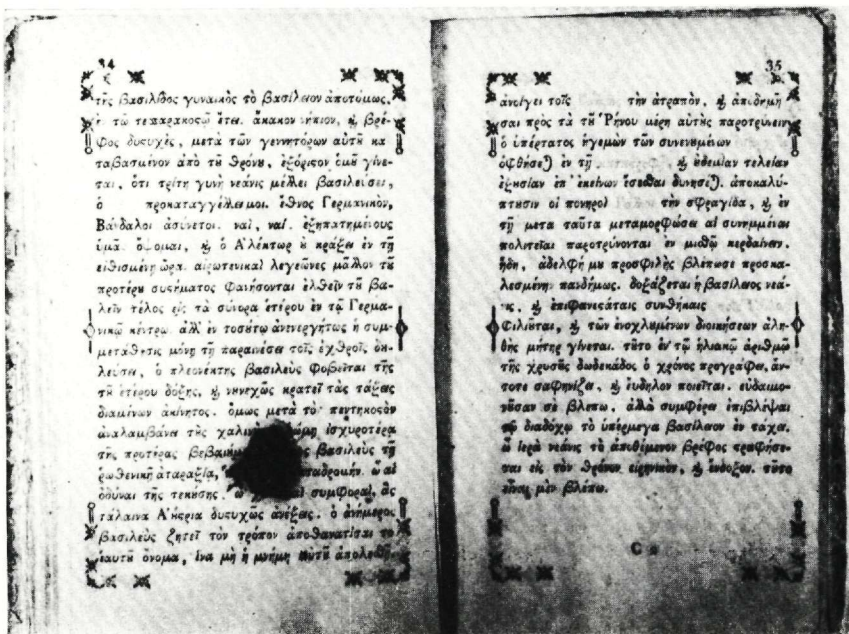 34
τῆς βασιλίδος γυναικὸς τὸ βασίλειον ἀποτόμως.
τῷ τεσσαρακοςῷ ἔτει. ἄκακον νήπιον, ϗ βρέ-
φος δυςυχὲς, μετὰ τῶν γεννητόρων αὐτȣ͂ κα
ταβασμένον ἀπὸ τȣ͂ θρόνȣ, ἐξόριςον ὁμȣ͂ γίνε-
ται, ὅτι τρίτη γυνὴ νεάνις μέλλει βασιλεύσει,
ὁ προκαταγγέλλει μοι. ἔθνος Γερμανικὸν,
Βάνδαλοι ἀσύνετοι. ναὶ, ναί. ἐξηπατημένους
ὑμᾶ. ὄψομαι, ϗ ὁ Ἀλέκτωρ ȣ κράξει ἐν τῇ
εἰθισμένῃ ὥρᾳ. λεγεῶνες μᾶλλον τȣ͂
προτέρȣ συςήματος φανήσονται ἐλθεῖν τȣ͂ βα-
λεῖν τέλος εἰς τὰ σύνορα ἑτέρου ἐν τῷ Γερμα-
νικῷ κέντρῳ. ἀλλ' ἐν τοσȣ́τῳ ἀνενεργήτως ἡ συμ-
μετάθησις μόνῃ τῇ παραινέσει τοῖς ἐχθροῖς δȣ-
λεύσει, ὁ πλεονέκτης βασιλεὺς φοβεῖται τῆς
τȣ͂ ἑτέρου δόξης, ϗ νηνεχῶς κρατεῖ τὰς τάξεις
διαμένων ἀκίνητος. ὅμως μετὰ τὸ πεντηκοςὸν
ἀναλαμβάνει τῆς ἰσχυροτέρᾳ
τῆς προτέρας βασιλεὺς τῇ
ἀταραξίᾳ, ὦ αἱ
ὀδύναι τῆς τεκȣ́σης. ὦ συμφοραὶ, ἃς
τάλαινα Αὔςρια δυςυχῶς ἀνέξεις. ὁ ἀνήμερος
βασιλεὺς ζητεῖ τὸν τρόπον ἀποθανατίσαι τὸ
ἑαυτȣ͂ ὄνομα, ἵνα μὴ ἡ μνήμη αὐτȣ͂
35
ἀνοίγει τοῖς τὴν ἀτραπὸν, ϗ ἀπιδημῆ
σαι πρὸς τὰ τȣ͂ Ῥήνου μέρη αὐτῆς παροτρύνειν
ὁ ὑπέρτατος ἡγεμὼν τῶν συνενȣμένων
ὀφθήσε) ἐν τῇ , ϗ ȣδεμίαν τελείαν
ἐξȣσίαν ἐπ' ἐκείνων ἔσεσθαι δυνήσε). ἀποκαλύ-
πτȣσιν οἱ πονηροὶ τὴν σφραγίδα, ϗ ἐν
τῇ μετὰ ταῦτα μεταμορφώσει αἱ συνημμέναι
πολιτεῖαι παροτρύνονται ἐν μισθῷ κερδαίνειν.
ἤδη, ἀδελφή μȣ προσφιλὴς βλέπω σε προσκα-
λεσμένην πανδήμως. δοξάζεται ἡ βασίλειος νεά-
νις, ϗ ἐπιφανεςάταις συνθήκαις
φιλιȣ͂ται, ϗ τῶν ἐνοχλȣμένων διοικήσεων ἀλη-
θὴς μήτηρ γίνεται. τȣ͂το ἐν τῷ ἡλιακῷ ἀριθμῷ
τῆς χρυσῆς δωδεκάδος ὁ χρόνος προγράφει, ἄν-
τοτε σαφηνίζει, ϗ εὔδηλον ποιεῖται. εὐδαιμο-
νȣ͂σαν σὲ βλέπω. ἀλλὰ συμφέρει ἐπιβλέψαι
τῷ διαδόχῳ τὸ ὑπέρμεγα βασίλειον ἐν τάχει.
ὦ ἱερὰ νεάνις τὸ ἀποθέμενον βρέφος τραφήσε-
σαι εἰς τὸν θρόνον εἰρηνικὸν, ϗ ἔνδοξον. τȣ͂το
εἶναι μὲν βλέπω.
C 2